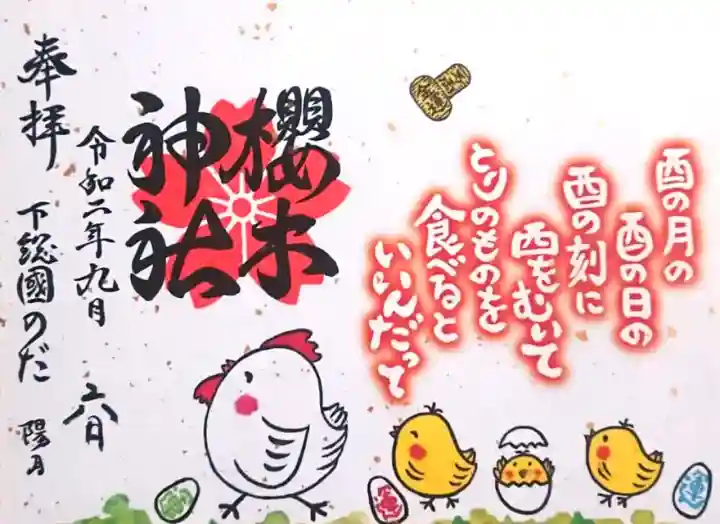 酉の月の
酉の日の
酉の刻に
酉をむいて
とりのものを
食べると
いいんだって
櫻木
神社
奉拝
令和二年九月
六日
下総國のだ
陽月
運